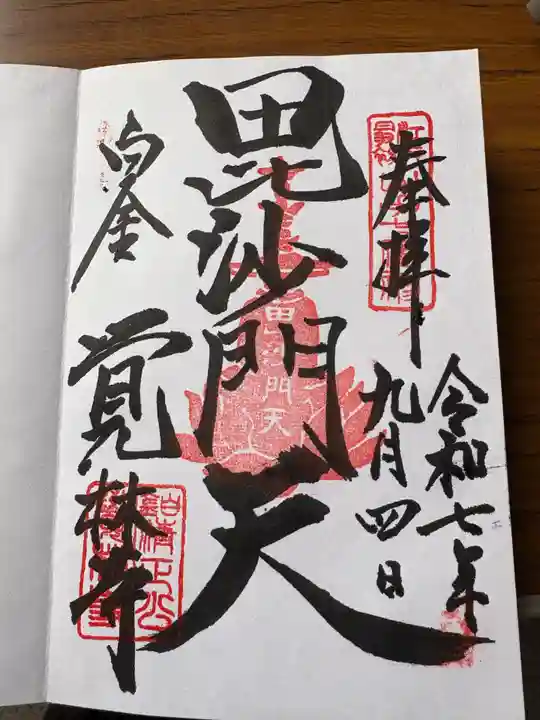 奉拝
令和七年
九月四日
毘沙門天
毘沙門天
白金
覚林寺